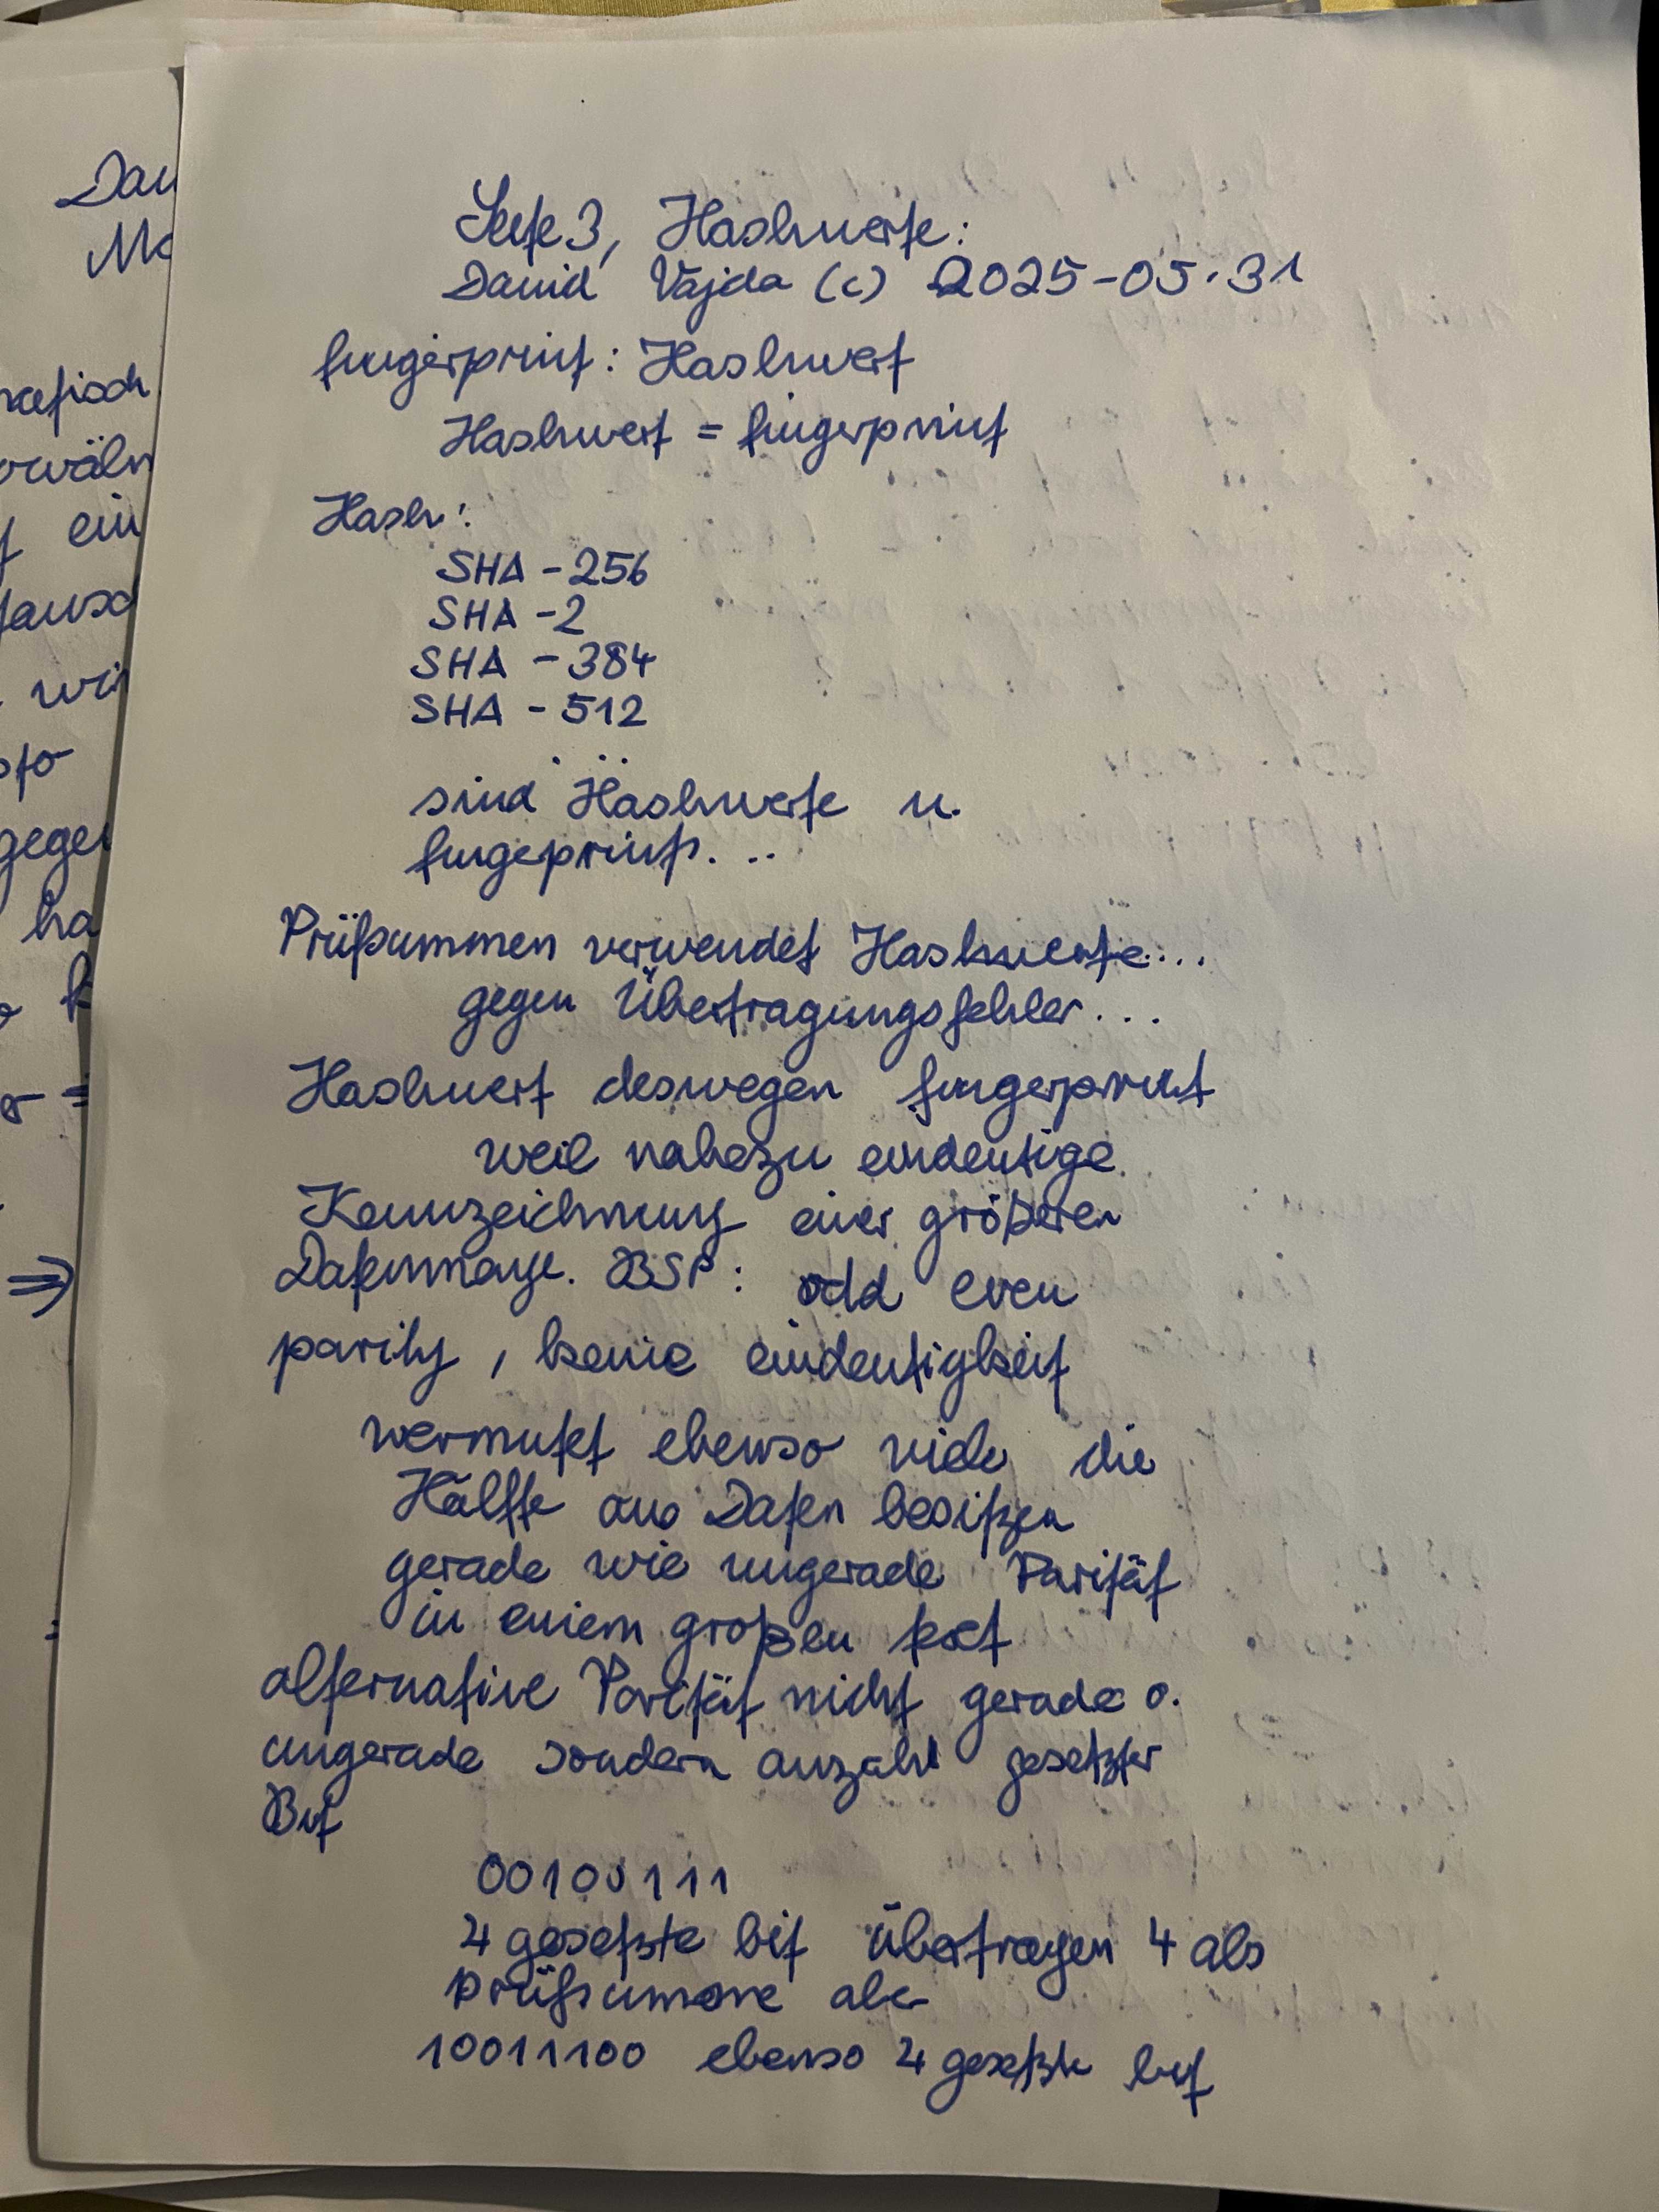 Seite 3, Hashwerte:
David Vajda (c) 2025-05-31
fingerprint: Hashwert
Hashwert = fingerprint
Hash:
SHA-256
SHA-2
SHA-384
SHA-512
...
sind Hashwerte u.
fingeprints...
Prüfsummen verwendet Hashwerte...
gegen Übertragungsfehler...
Hashwert deswegen fingerprint
weil nahezu eindeutige
Kennzeichnung einer größeren
Datenmenge. BSP: odd even
parity, keine eindeutigkeit
vermutet ebenso viele die
Hälfte aus Daten besitzen
gerade wie ungerade Parität
in einem großen
alternative Parität nicht gerade o.
ungerade sondern anzahl gesetzter
Bit
00100111
4 gesetzte bit übertragen 4 als
prüfsumme aber
10011100 ebenso 4 gesetzte bit
Dav
rafisch
ein
tausc
wir
gege
ha
⇒